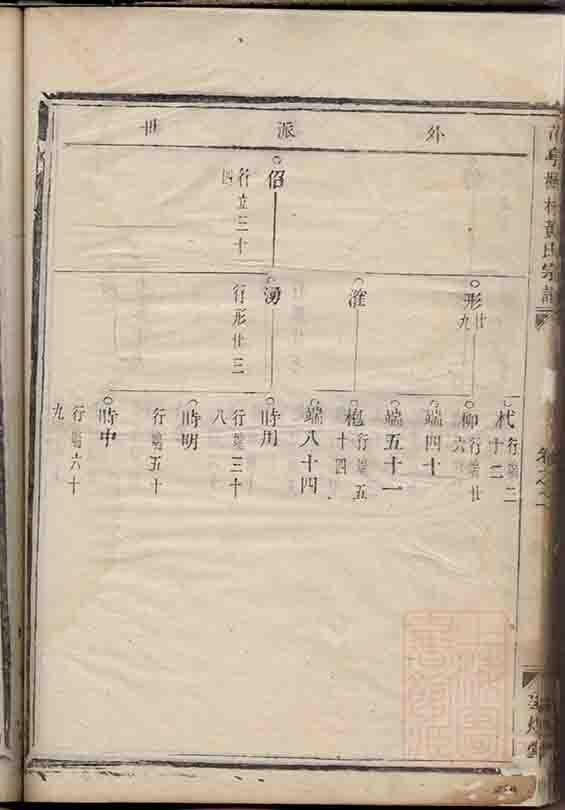 外派世
佋
行立三十
四
形
廿
九
湧
行形廿三
杙
行端二
十二
柳
行端廿
六
端四十
端五十一
行端五
十四
端八十四
時用
行端三十
八
時明
行端五十
時中
行端六十
九
黃氏宗譜
卷之二